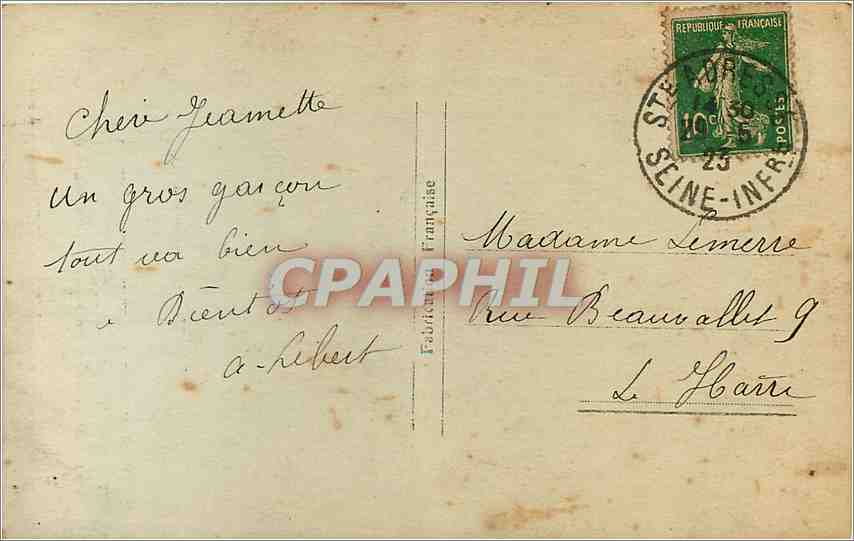 Chère Jeannette
un gros garçon
tout va bien
a Bientôt
A. Lebert
Fabrication Française
REPUBLIQUE FRANÇAISE
10c
POSTES
STE ADRESSE
14 30
5
25
SEINE-INFRE
Madame Lemerre
Rue Beauvallet 9
Le Havre
CPAPHIL